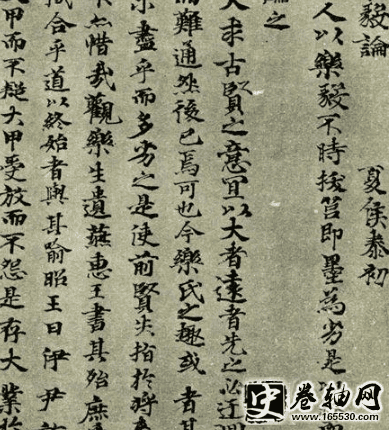 毅論 夏侯泰初
人以樂毅不時拔莒即墨為劣是
論之
夫求古賢之意宜以大者遠者先之必迂
而難通然後已焉可也今樂氏之趣或者其
未盡乎而多劣之是使前賢失指於將
不亦惜哉觀樂生遺燕惠王書其殆庶
機合乎道以終始者與其喻昭王曰伊尹
大甲而不疑大甲受放而不怨是存大業於
史 卷轴网
www.165530.com